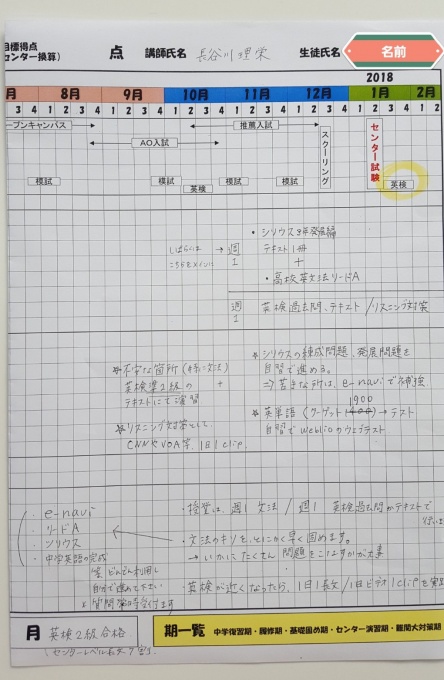 目標得点
センター換算)
点 講師氏名 長谷川理栄 生徒氏名 名前
2018
月 8月 9月 10月 11月 12月 1月 2月
3 4 1 2 3 4 1 2 3 4 1 2 3 4 1 2 3 4 1 2 3 4 1 2 3 4 1 2
ープンキャンパス
推薦入試
AO入試
スクーリング
センター試験
模試 模試 模試 模試
英検 英検
・シリウス3年発展編
しばらくは
こちらをメインに
→ 週1
テキスト1冊
+
・高校英文法リードA
週1 英検過去問、テキスト/リスニング対策
☆不安な箇所(特に文法)
英検準2級の +
テキストにて演習
☆リスニング対策として、
CNNやVOA等、1日1clip.
☆シリウスの練成問題、発展問題を
自習で進める。
⇒苦手な所は、e-naviで補強
1900
☆英単語(ターゲット) → テスト
自習でWeblioのウェブテスト
・e-navi
・リードA
・シリウス
・中学英語の完成
どんどん利用し
自分で進めて下さい
・授業は、週1文法/週1 英検過去問かテキストで
・文法のキソを、とにかく早く固めます。
→いかにたくさん問題をこなすかが大事
・英検が近くなったら、1日1長文/1日ビデオ1clipを
月 英検2級合格
期一覧 中学復習期・履修期・基礎固め期・センター演習期・難関大対策期